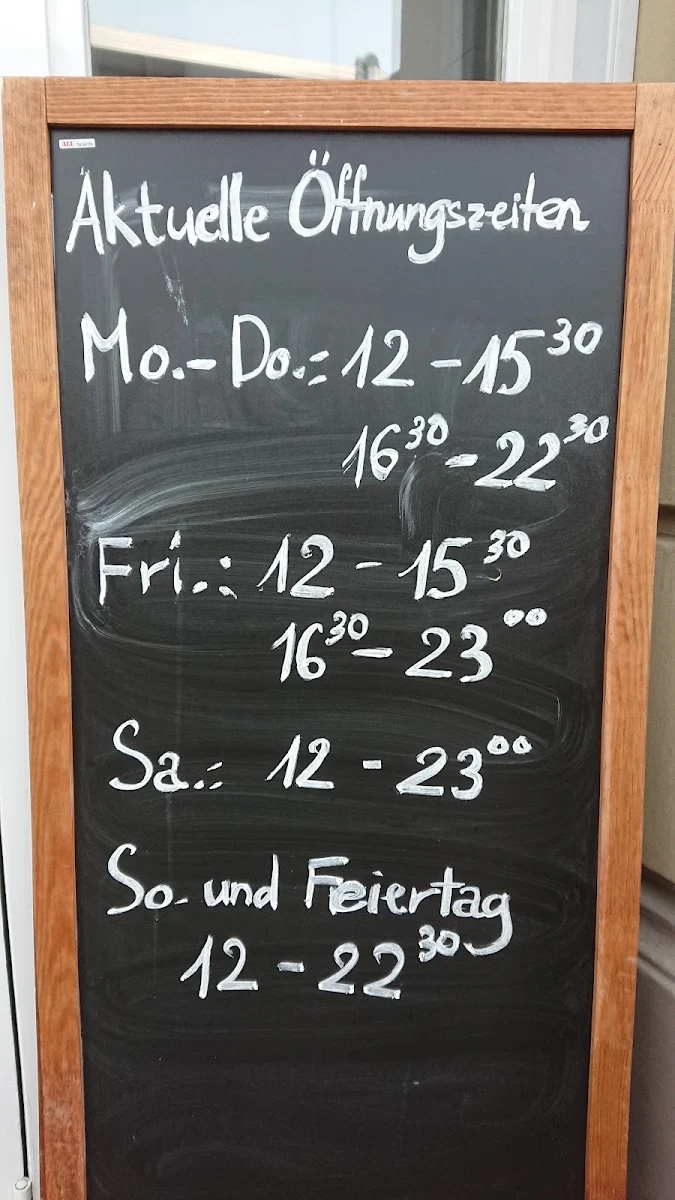 ALL boards
Aktuelle Öffnungszeiten
Mo.-Do.: 12 - 15³⁰
16³⁰ - 22³⁰
Fri.: 12 - 15³⁰
16³⁰ - 23⁰⁰
Sa.: 12 - 23⁰⁰
So. und Feiertag
12 - 22³⁰